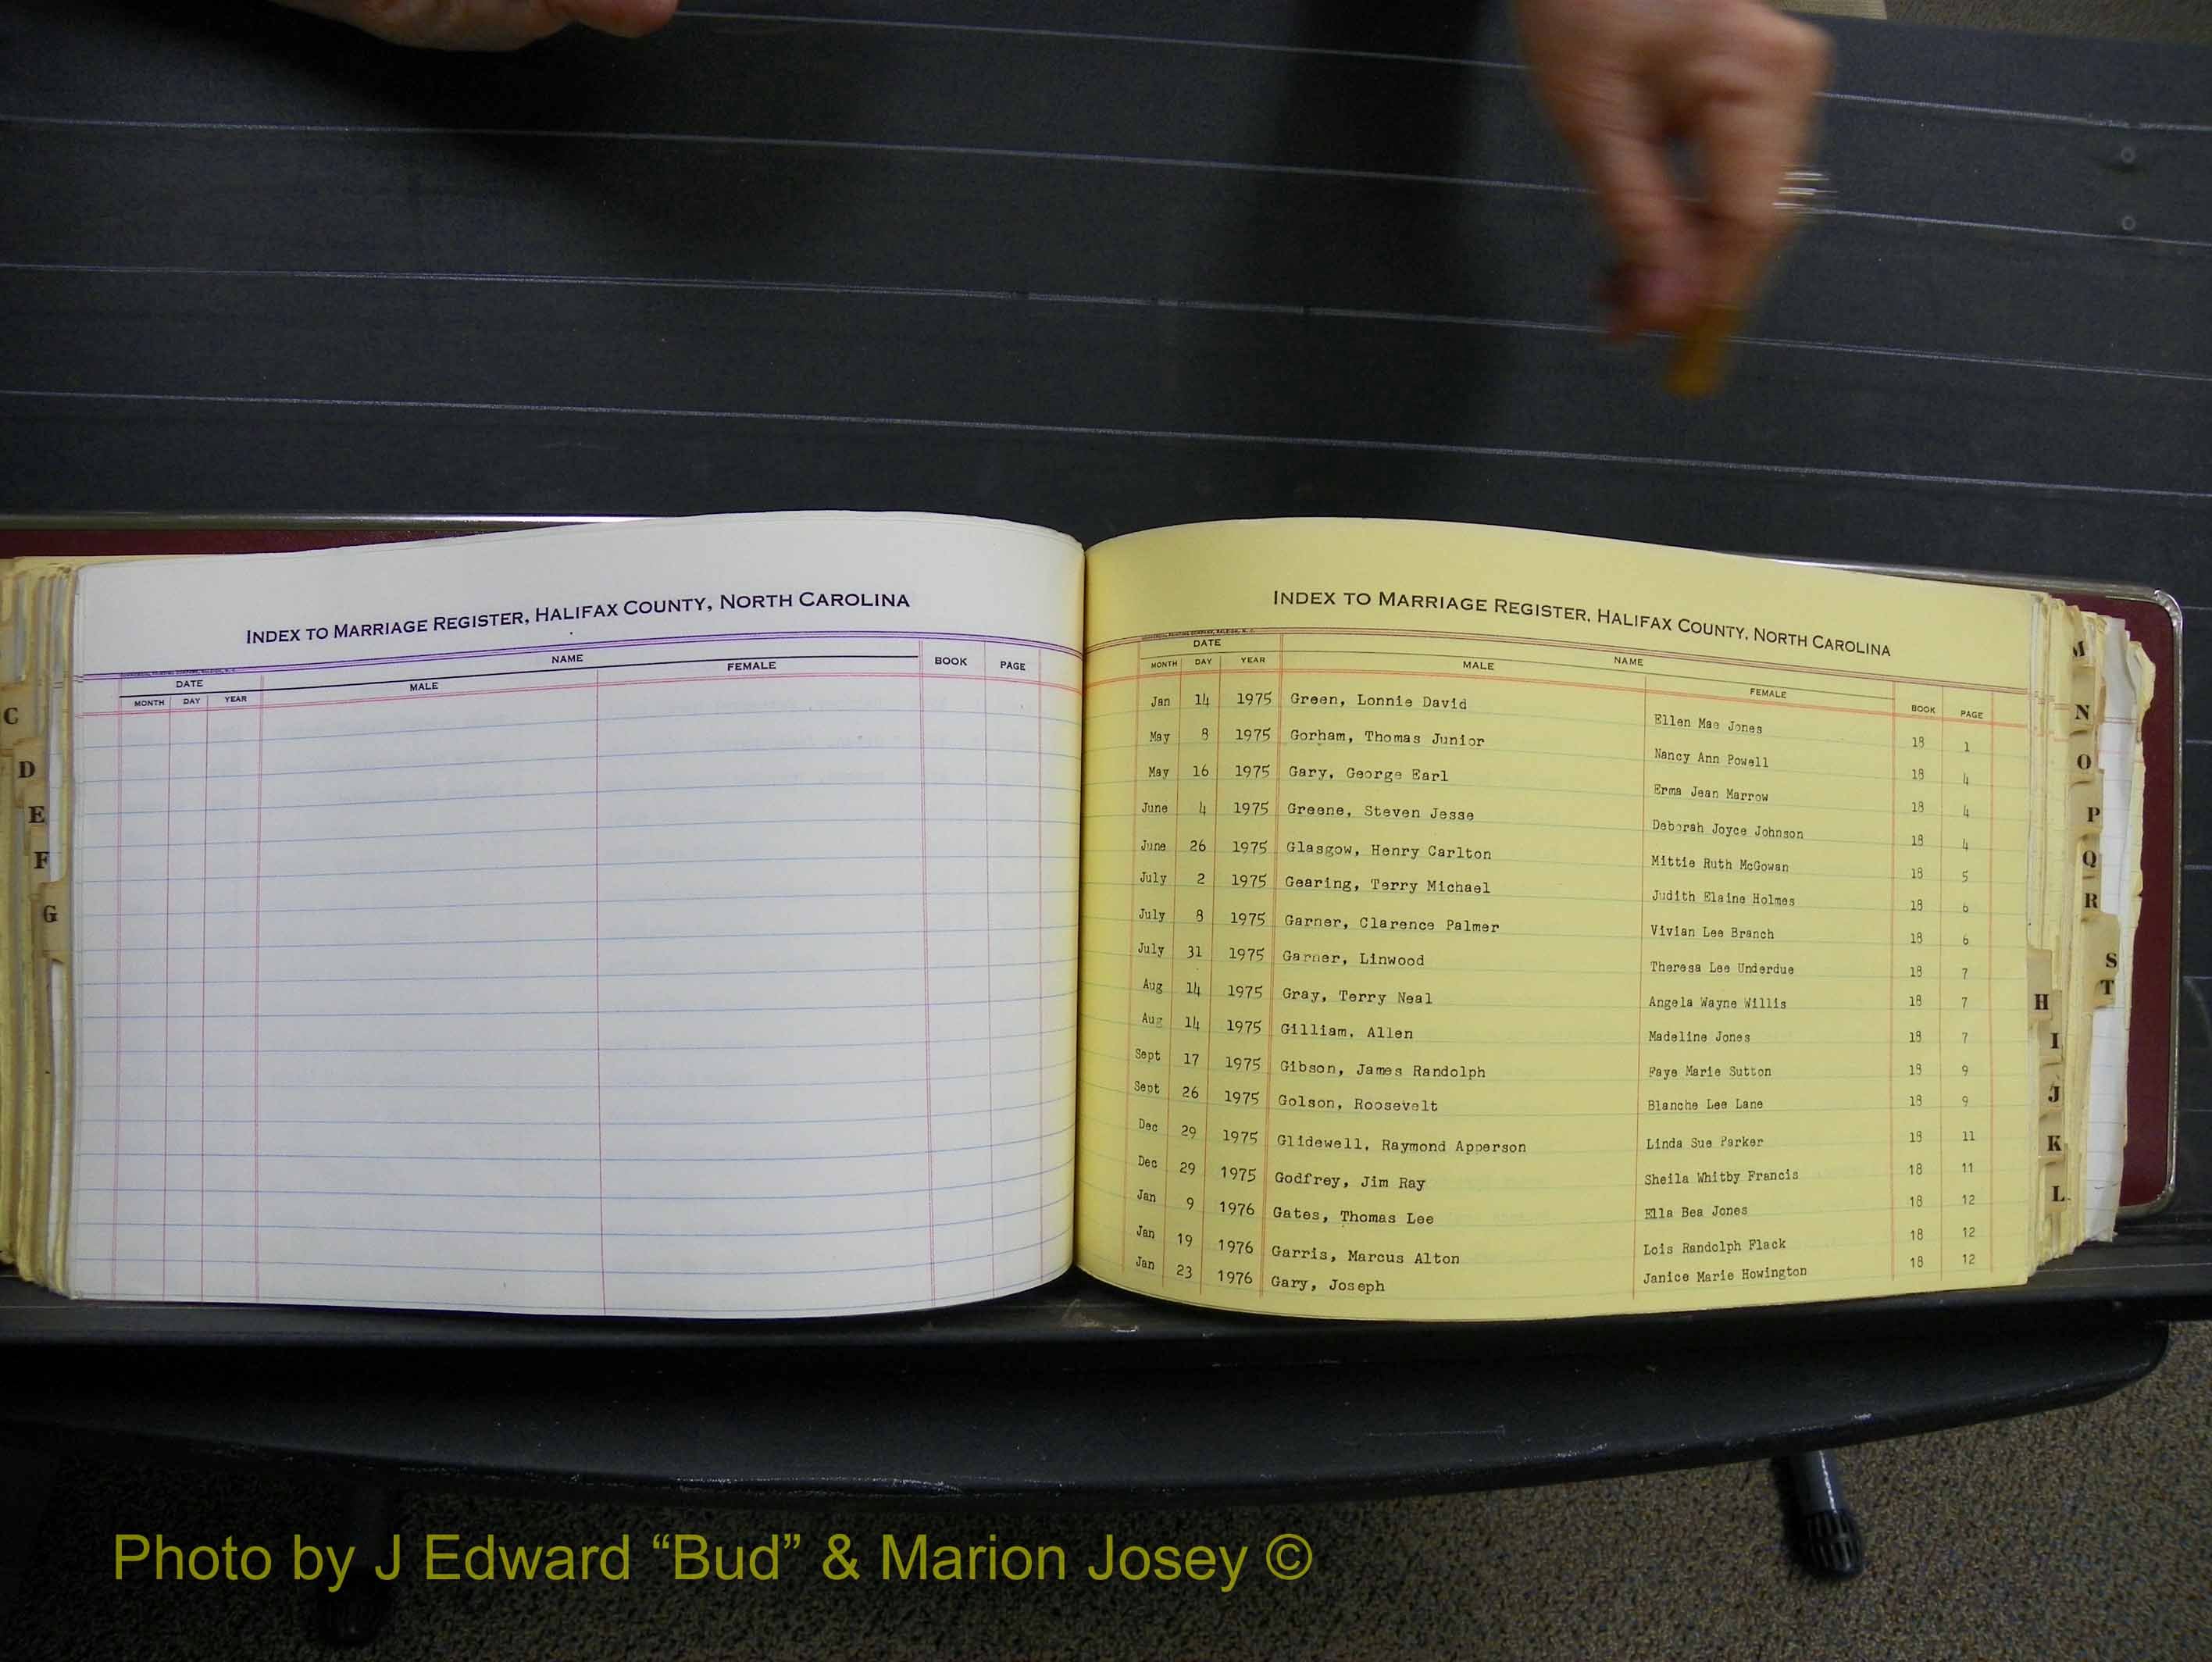 INDEX TO MARRIAGE REGISTER, HALIFAX COUNTY, NORTH CAROLINA
DATE NAME BOOK PAGE
MONTH DAY YEAR MALE FEMALE
C
D
E
F
G
INDEX TO MARRIAGE REGISTER, HALIFAX COUNTY, NORTH CAROLINA
DATE NAME
MONTH DAY YEAR MALE FEMALE BOOK PAGE
Jan 14 1975 Green, Lonnie David Ellen Mae Jones 18 1
May 8 1975 Gorham, Thomas Junior Nancy Ann Powell 18 4
May 16 1975 Gary, George Earl Erma Jean Marrow 18 4
June 4 1975 Greene, Steven Jesse Deborah Joyce Johnson 18 4
June 26 1975 Glasgow, Henry Carlton Mittie Ruth McGowan 18 5
July 2 1975 Gearing, Terry Michael Judith Elaine Holmes 18 6
July 8 1975 Garner, Clarence Palmer Vivian Lee Branch 18 6
July 31 1975 Garner, Linwood Theresa Lee Underdue 18 7
Aug 14 1975 Gray, Terry Neal Angela Wayne Willis 18 7
Aug 14 1975 Gilliam, Allen Madeline Jones 18 7
Sept 17 1975 Gibson, James Randolph Faye Marie Sutton 18 9
Sept 26 1975 Golson, Roosevelt Blanche Lee Lane 18 9
Dec 29 1975 Glidewell, Raymond Apperson Linda Sue Parker 18 11
Dec 29 1975 Godfrey, Jim Ray Sheila Whitby Francis 18 11
Jan 9 1976 Gates, Thomas Lee Ella Bea Jones 18 12
Jan 19 1976 Garris, Marcus Alton Lois Randolph Flack 18 12
Jan 23 1976 Gary, Joseph Janice Marie Howington 18 12
H
I
J
K
L
M
N
O
P
Q
R
S
T
Photo by J Edward “Bud” & Marion Josey ©